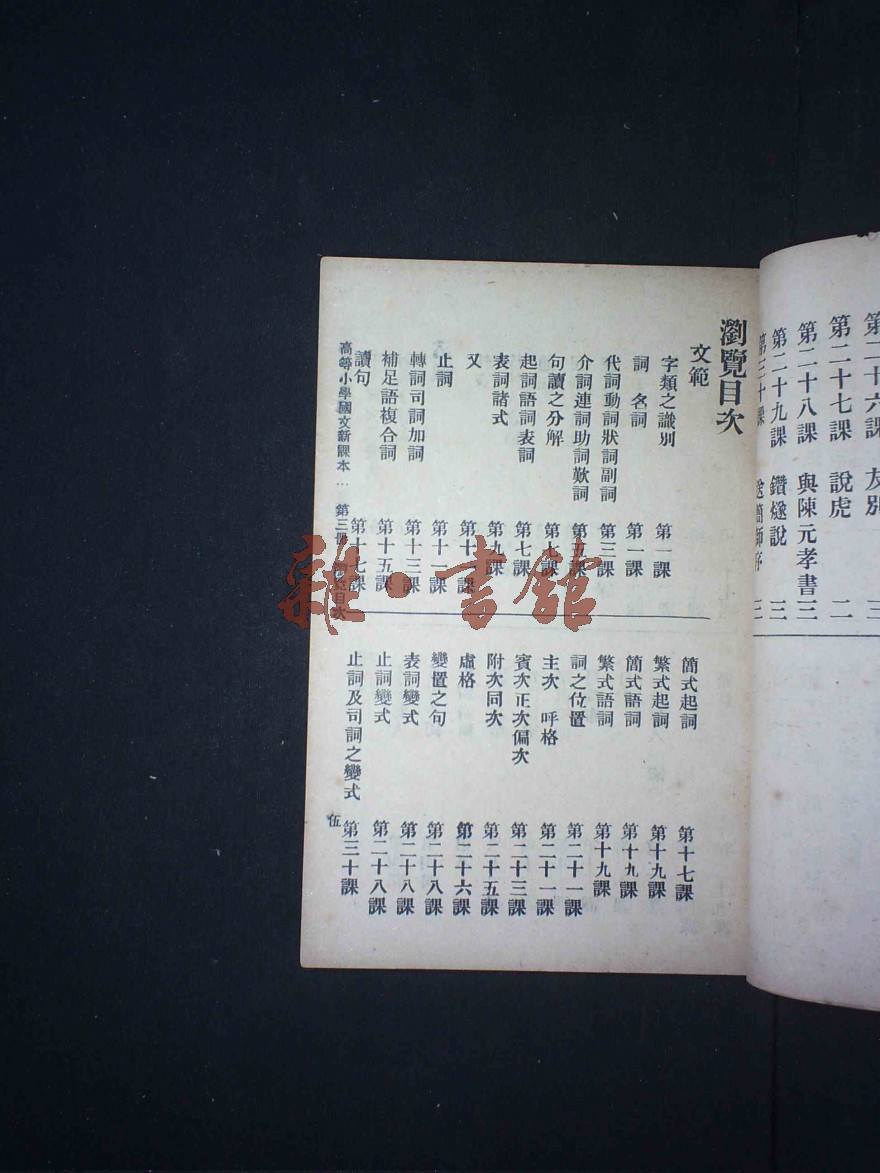 第二十六課 友別 三
第二十七課 說虎 二
第二十八課 與陳元孝書 三
第二十九課 鑽燧說 三
第三十課 三
瀏覽目次
文範
字類之識別 第一課
詞 名詞 第一課
代詞動詞狀詞副詞 第三課
介詞連詞助詞歎詞 第五課
句讀之分解 第七課
起詞語詞表詞 第七課
表詞諸式 第九課
又 第十一課
止詞 第十一課
轉詞司詞加詞 第十三課
補足語複合詞 第十五課
讀句 第十七課
簡式起詞 第十七課
繁式起詞 第十九課
簡式語詞 第十九課
繁式語詞 第十九課
詞之位置 第二十一課
主次 呼格 第二十一課
賓次正次偏次 第二十三課
附次同次 第二十五課
虛格 第二十六課
變置之句 第二十八課
表詞變式 第二十八課
止詞變式 第二十八課
止詞及司詞之變式 第三十課
高等小學國文新課本 第三冊 目次 伍
雜·書館